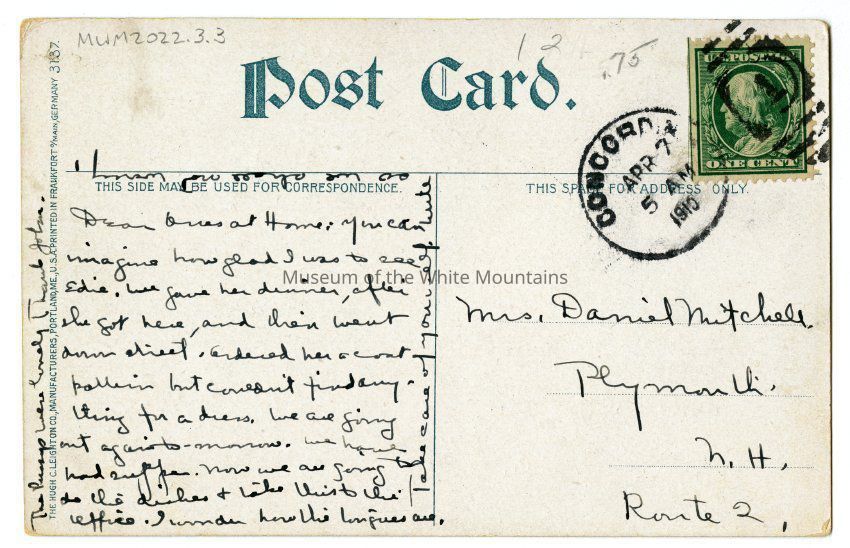 MWM2022.3.3
12
.75
Post Card.
U.S. POSTAGE
ONE CENT
CONCORD, N
APR 7
5 AM
1910
THIS SIDE MAY BE USED FOR CORRESPONDENCE.
THIS SPACE FOR ADDRESS ONLY.
Dear Ones at Home: You can
imagine how glad I was to see
Edie. We gave her dinner, after
she got here, and then went
down street. Ordered her a coat
pattern but couldn't find any-
thing for a dress. We are going
out again to-morrow. We have
had supper. Now we are going to
do the dishes & take this to the
office. I wonder how the tongues are.
Take care of yourself
The
were lovely. Thank John.
Mrs. Daniel Mitchell.
Plymouth.
N. H.
Route 2,
THE HUGH C. LEIGHTON CO., MANUFACTURERS, PORTLAND, ME., U.S.A. PRINTED IN FRANKFORT O/MAIN, GERMANY 3137.
Museum of the White Mountains